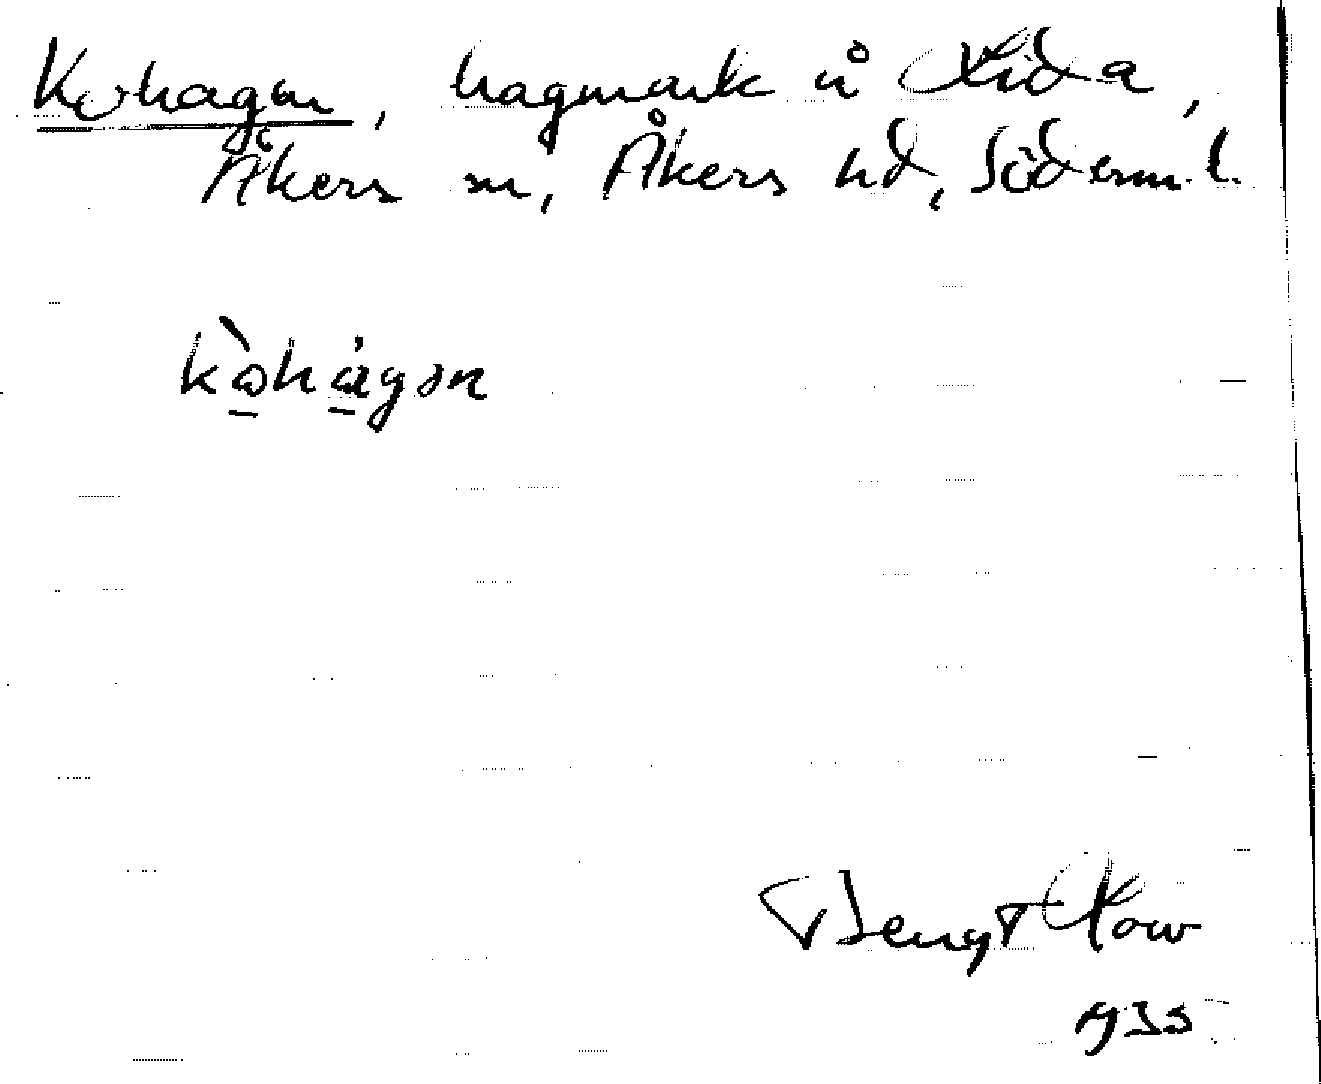 Kohagen, hagmark å Lida,
Åkers sn, Åkers hd, Söderml.
kòhágən
Bengt
1935